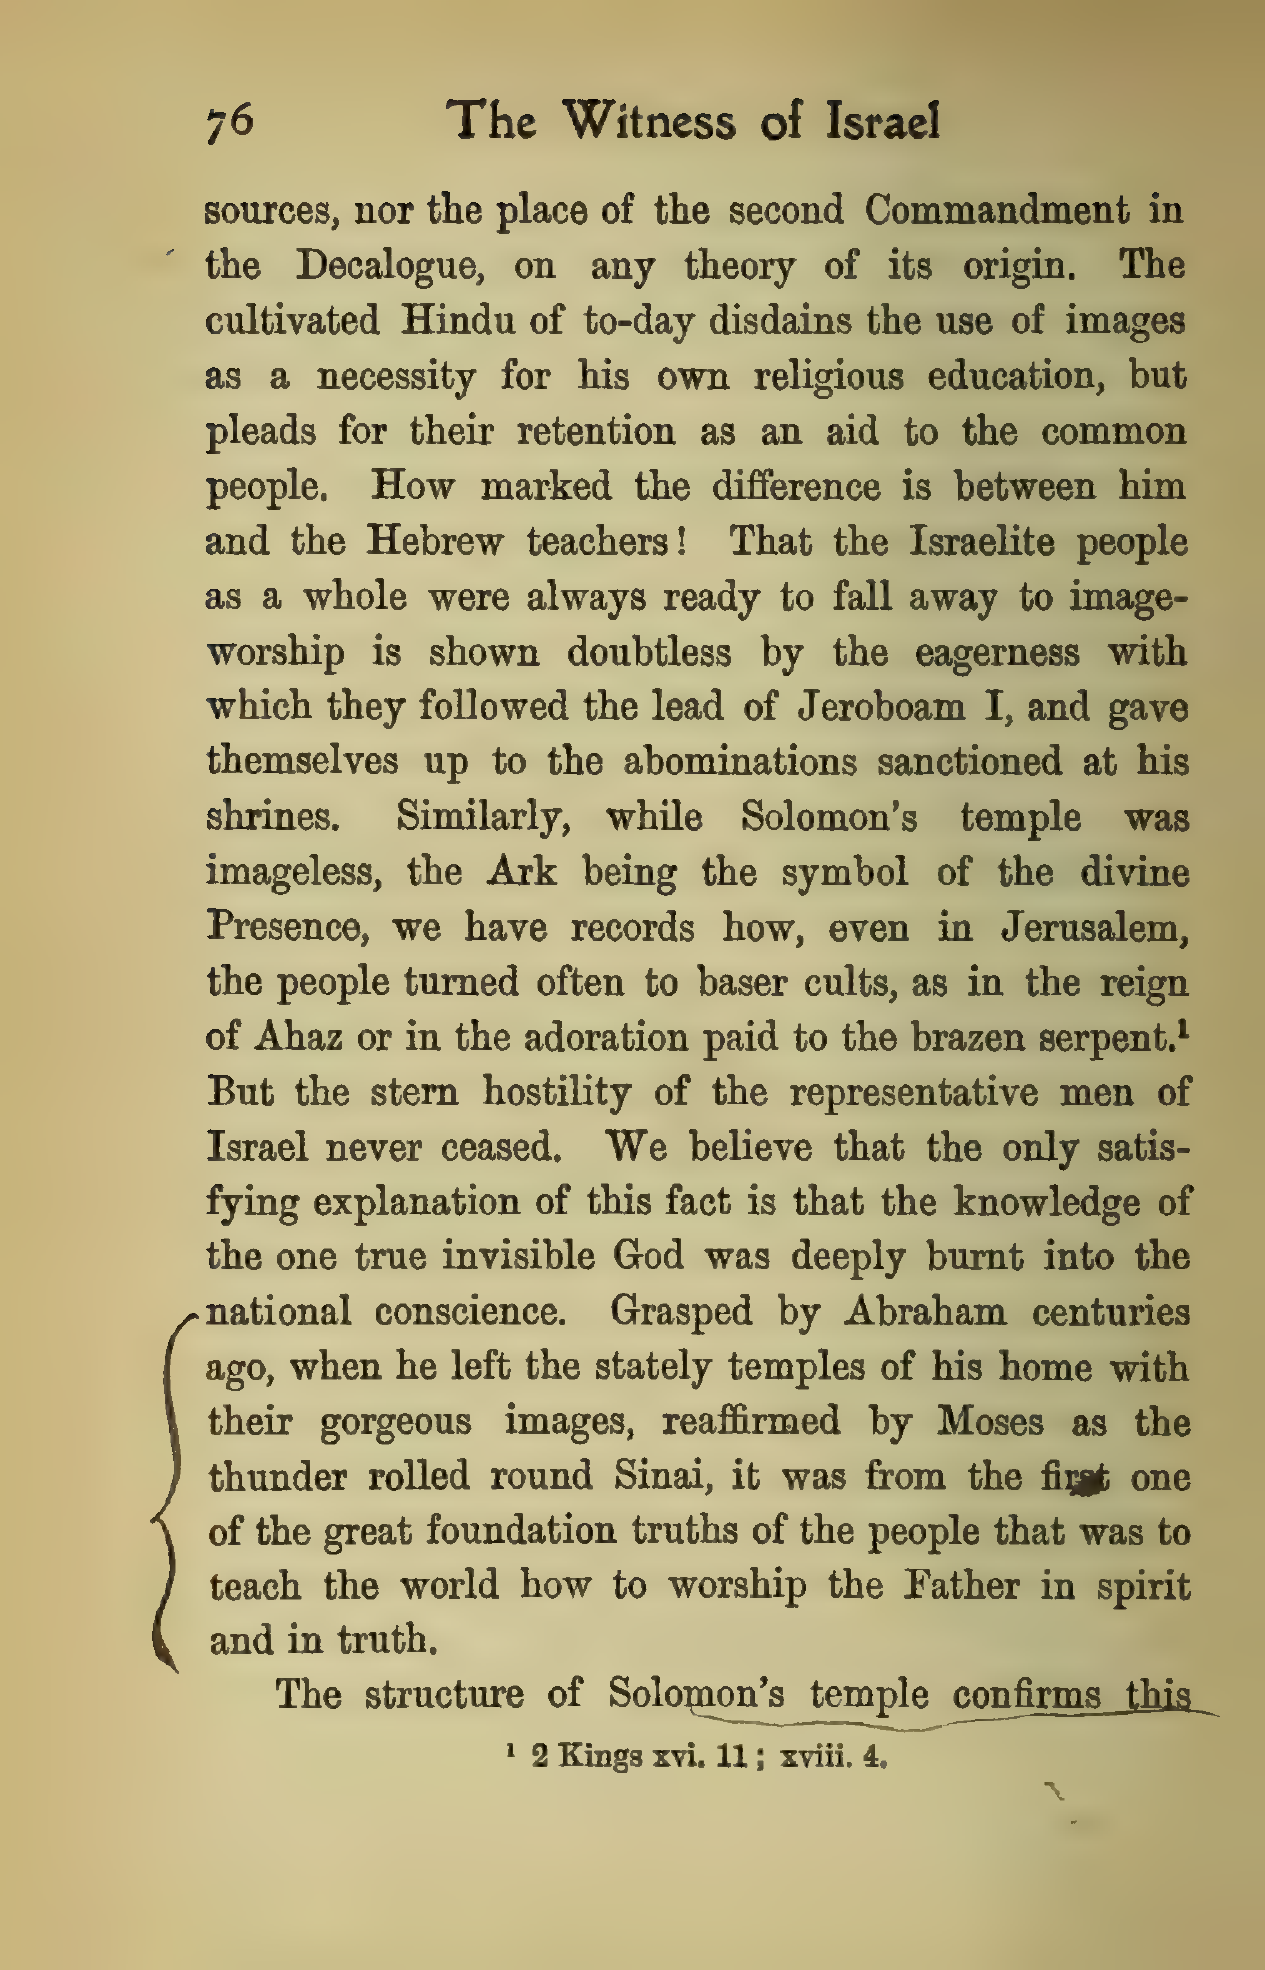 76 The Witness of Israel
sources, nor the place of the second Commandment in
the Decalogue, on any theory of its origin. The
cultivated Hindu of to-day disdains the use of images
as a necessity for his own religious education, but
pleads for their retention as an aid to the common
people. How marked the difference is between him
and the Hebrew teachers! That the Israelite people
as a whole were always ready to fall away to image-
worship is shown doubtless by the eagerness with
which they followed the lead of Jeroboam I, and gave
themselves up to the abominations sanctioned at his
shrines. Similarly, while Solomon's temple was
imageless, the Ark being the symbol of the divine
Presence, we have records how, even in Jerusalem,
the people turned often to baser cults, as in the reign
of Ahaz or in the adoration paid to the brazen serpent.¹
But the stern hostility of the representative men of
Israel never ceased. We believe that the only satis-
fying explanation of this fact is that the knowledge of
the one true invisible God was deeply burnt into the
national conscience. Grasped by Abraham centuries
ago, when he left the stately temples of his home with
their gorgeous images, reaffirmed by Moses as the
thunder rolled round Sinai, it was from the first one
of the great foundation truths of the people that was to
teach the world how to worship the Father in spirit
and in truth.
The structure of Solomon's temple confirms this
¹ 2 Kings xvi. 11; xviii. 4.